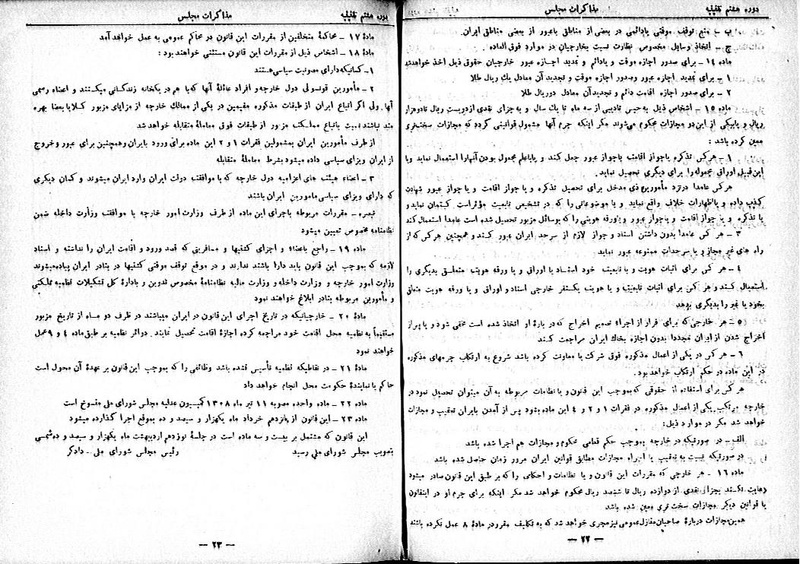 دوره هشتم تقنینیه
مذاکرات مجلس
ب ـ منع توقف موقتی یا دائمی در بعضی از مناطق یا عبور از بعضی مناطق ایران.
ج ـ اتخاذ وسایل مخصوص نظارت نسبت بخارجیان در موارد فوق العاده
ماده ۱۴ ـ برای صدور اجازه موقت و یا دائم و تجدید اجازه عبور خارجیان حقوق ذیل اخذ خواهد شد
۱ ـ برای تجدید اجازه عبور و صدور اجازه موقت و تجدید آن معادل یک ریال طلا
۲ ـ برای صدور اجازه اقامت دائم و تجدید آن معادل دو ریال طلا
ماده ۱۵ ـ اشخاص ذیل به حبس تأدیبی از سه ماه تا یک سال و به جزای نقدی از دویست ریال تا دو هزار
ریال و یا بیکی از این دو مجازات محکوم میشوند مگر اینکه جرم آنها مشمول قوانینی گردد که مجازات سخت‌تری
معین کرده باشد :
۱ ـ هر کس تذکره یا جواز اقامت یا جواز عبور جعل کند و یا با علم بمجعول بودن آنها را استعمال نماید و یا
این قبیل اوراق مجعوله را برای دیگری تحصیل نماید.
هر کس عامداً در نزد مأمورین ذی مدخل برای تحصیل تذکره و یا جواز اقامت و یا جواز عبور شهادت
کذب داده و یا اظهارات خلاف واقع نماید و یا موضوعاتی را که در تشخیص تابعیت مؤثر است کتمان نماید و
یا تذکره و یا جواز اقامت و یا جواز عبور و یا ورقه هویتی را که بوسائل مزبور تحصیل شده است عامداً استعمال کند
۳ ـ هر کس عامداً بدون داشتن اسناد و جواز لازم از سرحد ایران عبور کند و همچنین هر کس که از
راه های غیر مجاز و یا سرحدات ممنوعه عبور نماید
۴ ـ هر کس برای اثبات هویت و یا تابعیت خود اسناد یا اوراق و یا ورقه هویت متعلق بدیگری را
استعمال کند و هر کس برای اثبات تابعیت و یا هویت یکنفر خارجی اسناد و اوراق و یا ورقه هویت متعلق
بخود یا غیر را بدیگری بدهد
۵ ـ هر خارجی که برای فرار از اجراء تصمیم اخراج که درباره او اتخاذ شده است مخفی شود و یا پس از
اخراج شدن از ایران مجدداً بدون اجازه بخاک ایران مراجعت کند
۶ ـ هر کس در یکی از اعمال مذکوره فوق شرکت یا معاونت کرده باشد شروع به ارتکاب جرمهای مذکوره
در این ماده در حکم ارتکاب خواهد بود.
هر کس برای استفاده از حقوقی که بموجب این قانون و یا نظامات مربوطه به آن میتوان تحصیل نمود در
خارجه مرتکب یکی از اعمال مذکوره در فقرات ۱ و ۲ و ۴ این ماده بشود پس از آمدن بایران تعقیب و مجازات
خواهد شد مگر در موارد ذیل:
الف ـ در صورتیکه در خارجه بموجب حکم قطعی محکوم و مجازات هم اجرا شده باشد
در صورتیکه نسبت به تعقیب یا اجراء مجازات مطابق قوانین ایران مرور زمان حاصل شده باشد
ماده ۱۶ ـ هر خارجی که مقررات این قانون و یا نظامات و احکامی را که بر طبق این قانون صادر میشود
رعایت نکند بجزای نقدی از دوازده ریال تا ششصد ریال محکوم خواهد شد مگر اینکه برای جرم او در این قانون
یا قوانین دیگر مجازات سخت تری معین شده باشد
همین مجازات درباره صاحبان منازل عمومی نیز مجری خواهد شد که به تکالیف مقرر در ماده ۸ عمل نکرده باشند
ـ ۲۲ ـ
دوره هشتم تقنینیه
مذاکرات مجلس
ماده ۱۷ ـ محاکمهٔ متخلفین از مقررات این قانون در محاکم عمومی به عمل خواهد آمد
ماده ۱۸ ـ اشخاص ذیل از مقررات این قانون مستثنی خواهند بود :
۱ ـ کسانیکه دارای مصونیت سیاسی هستند
۲ ـ مأمورین قونسولی دول خارجه و افراد عائلهٔ آنها که با هم در یکخانه زندگانی میکنند و اعضاء رسمی
آنها. ولی اگر اتباع ایران از طبقات مذکوره مقیمین در یکی از ممالک خارجه از مزایای مزبور کلا یا بعضاً بهره
مند نباشند نسبت باتباع مملکت مزبور از طبقات فوق معاملهٔ متقابله خواهد شد
از طرف مأمورین ایران بمشمولین فقرات ۱ و ۲ این ماده برای ورود بایران و همچنین برای عبور و خروج
از ایران ویزای سیاسی داده میشود بشرط معاملهٔ متقابله
۳ ـ اعضاء هیئت های اعزامیه دول خارجه که با موافقت دولت ایران وارد ایران میشوند و کسان دیگری
که دارای ویزای سیاسی مأمورین ایران باشند
تبصره ـ مقررات مربوطه باجرای این ماده از طرف وزارت امور خارجه با موافقت وزارت داخله ضمن
نظامنامهٔ مخصوص تعیین میشود
ماده ۱۹ ـ راجع باعضاء و اجزای کشتیها و مسافرینی که قصد ورود و اقامت ایران را نداشته و اسناد
لازمه که بموجب این قانون باید دارا باشند ندارند و در موقع توقف موقتی کشتیها در بنادر ایران پیاده میشوند
وزارت امور خارجه و وزارت داخله و وزارت مالیه نظامنامهٔ مخصوص تدوین و بادارهٔ کل تشکیلات نظمیه مملکتی
و مأمورین مربوطه بنادر ابلاغ خواهند نمود
ماده ۲۰ ـ خارجیانیکه در تاریخ اجرای این قانون در ایران میباشند در ظرف دو ماه از تاریخ مزبور
مستقیماً به نظمیه محل اقامت خود مراجعه کرده اجازهٔ اقامت تحصیل نمایند. دوائر نظمیه بر طبق ماده ۴ و ۹ عمل
خواهند نمود
ماده ۲۱ ـ در نقاطیکه نظمیه تأسیس نشده باشد وظائفی را که بموجب این قانون بر عهدهٔ آن محول است
حاکم یا نمایندهٔ حکومت محل انجام خواهد داد
ماده ۲۲ ـ ماده واحده مصوبه ۱۱ تیر ماه ۱۳۰۸ کمیسیون عدلیه مجلس شورای ملی منسوخ است
ماده ۲۳ ـ این قانون از پانزدهم خرداد ماه یکهزار و سیصد و ده بموقع اجرا گذارده میشود
این قانون که مشتمل بر بیست و سه ماده است در جلسهٔ نوزدهم اردیبهشت ماه یکهزار و سیصد و ده شمسی
بتصویب مجلس شورای ملی رسید
رئیس مجلس شورای ملی ـ دادگر
ـ ۲۳ ـ